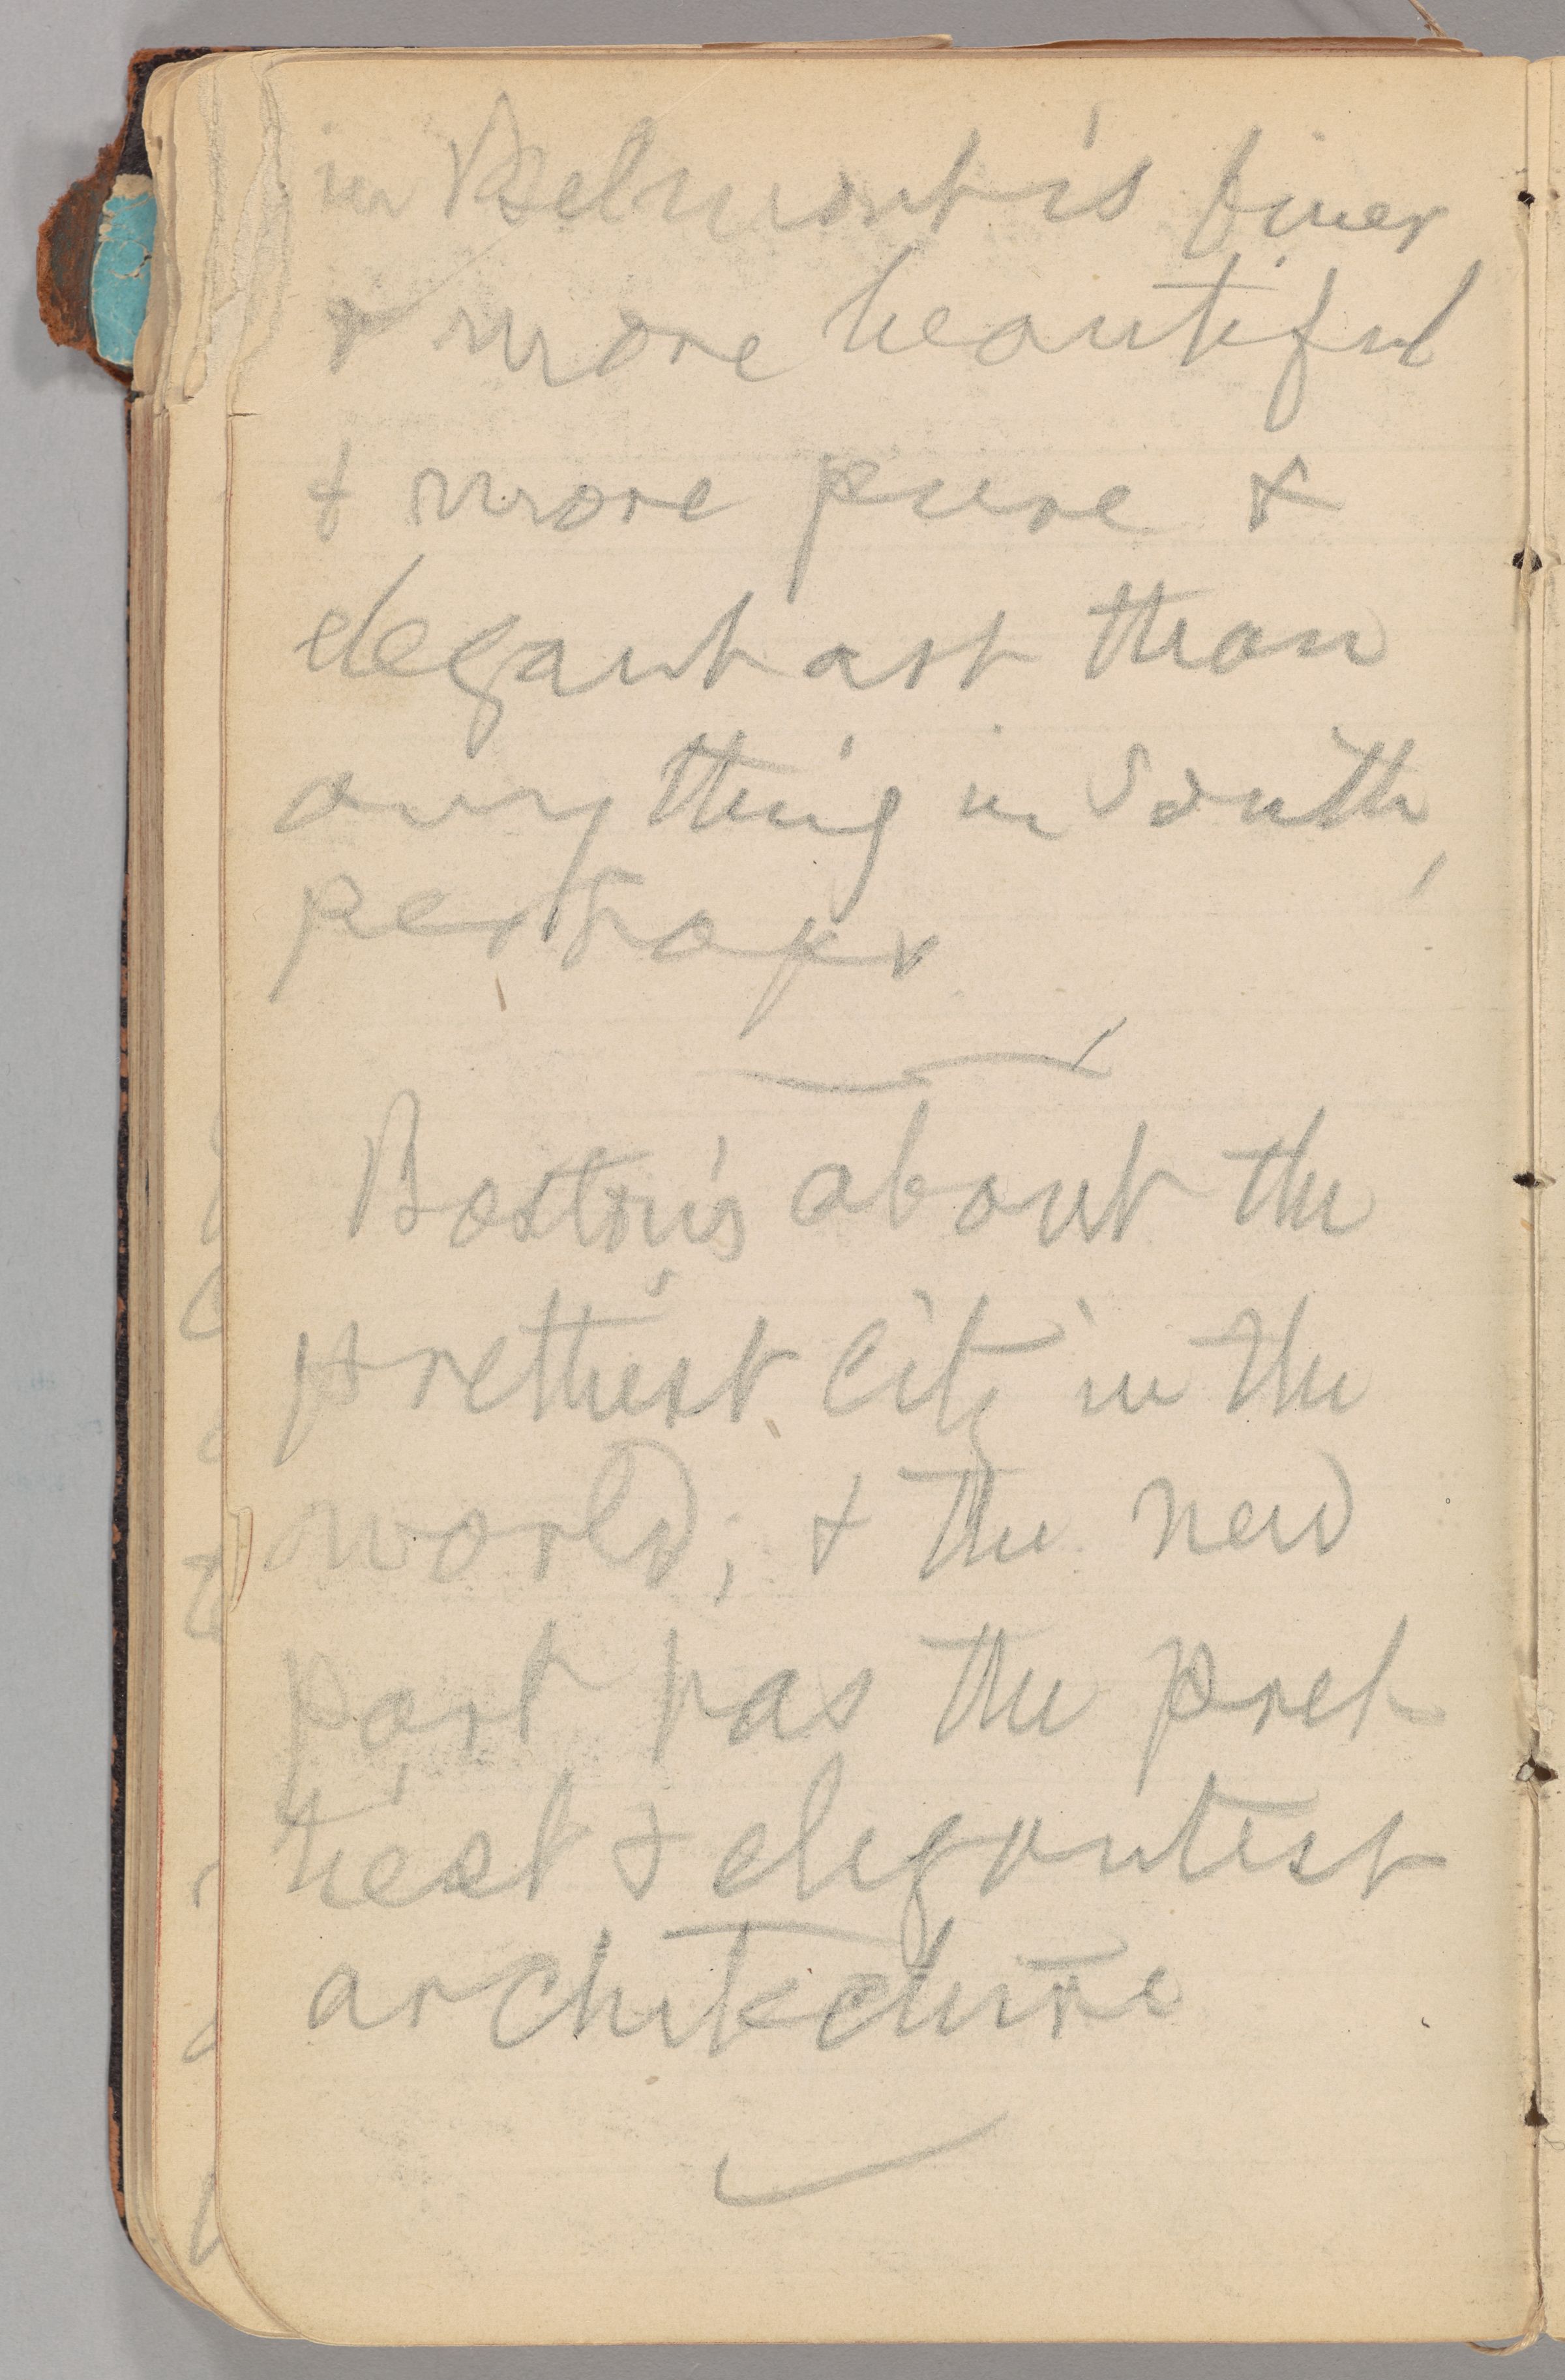 in Belmont is finer
& more beautiful
& more pure &
elegant art than
anything in South,
perhaps
Boston's about the
prettiest city in the
world; & the new
part has the pret
tiest & elegantest
architecture